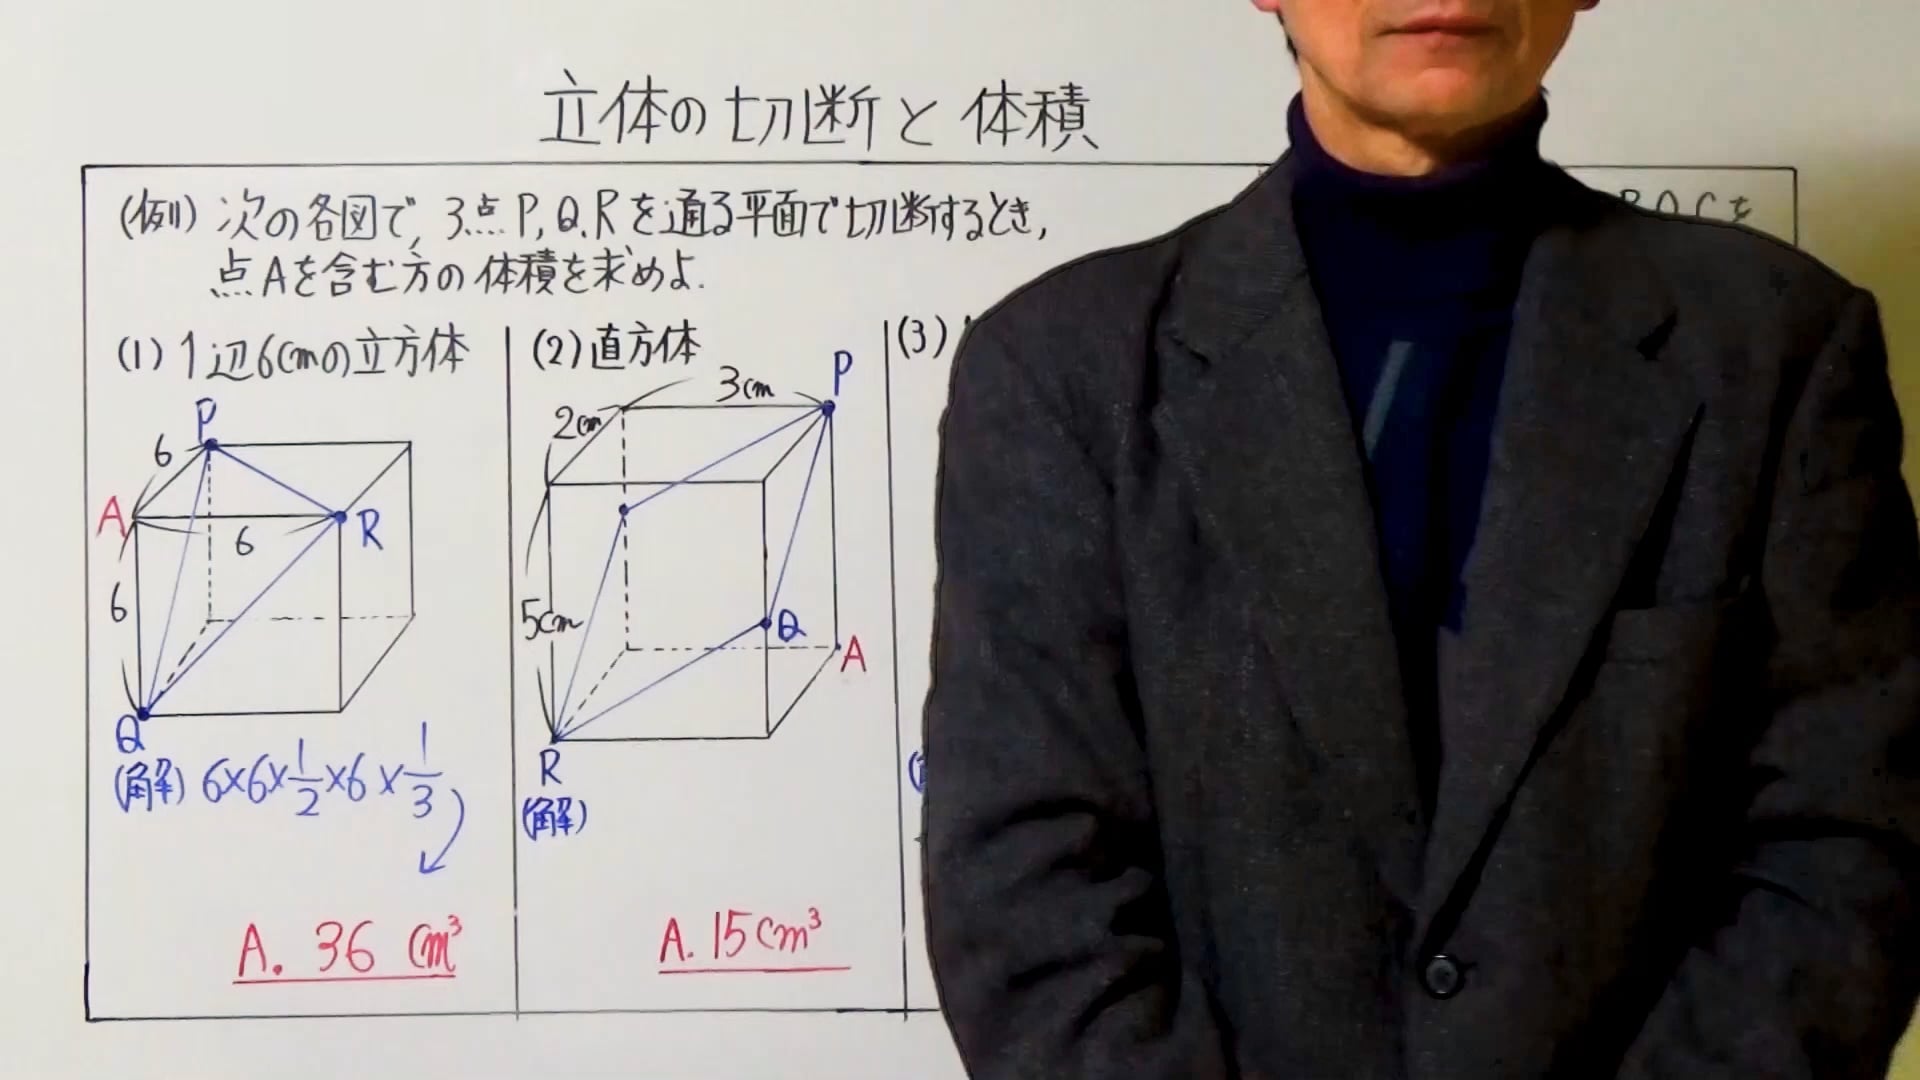 立体の切断と体積
(例) 次の各図で, 3点P,Q,Rを通る平面で切断するとき,
点Aを含む方の体積を求めよ.
(1) 1辺6cmの立方体
P
6
A
6
R
6
Q
(解) 6×6×1/2×6×1/3
A. 36 cm³
(2) 直方体
3cm
P
2cm
5cm
Q
A
R
(解)
A. 15cm³
(3)